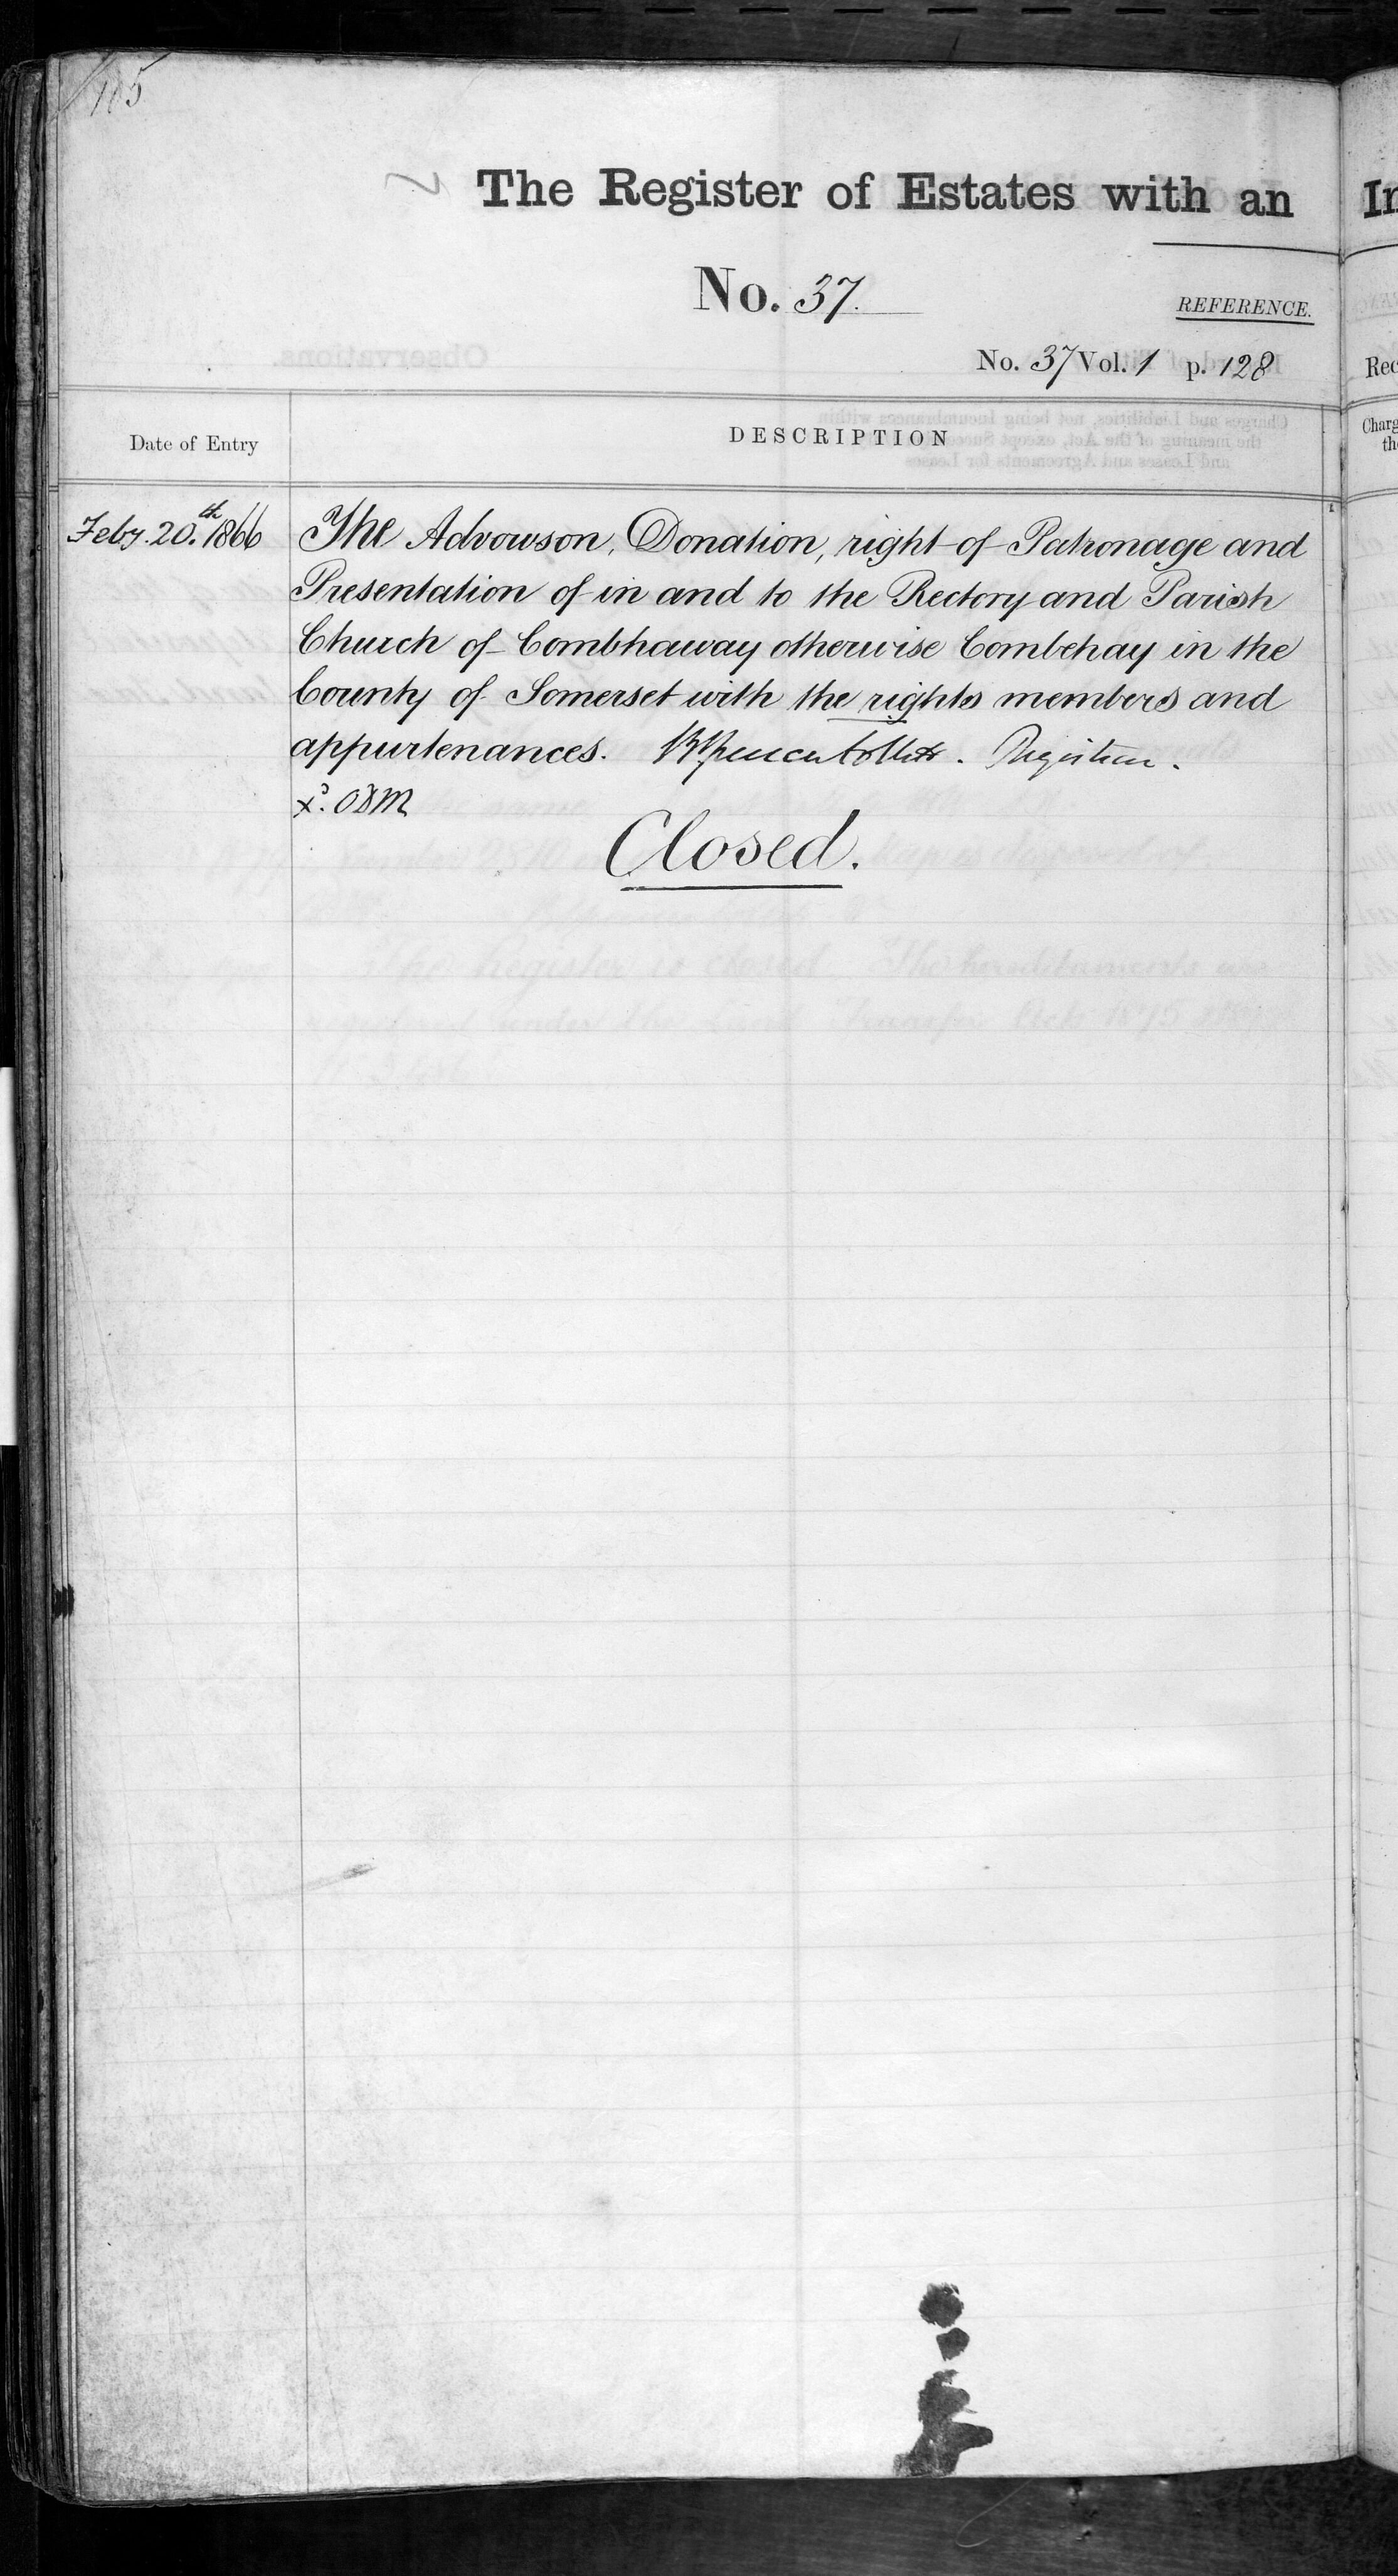 185
The Register of Estates with an
In
No. 37.
REFERENCE.
No. 37 Vol. 1 p. 128
Rec
Date of Entry
DESCRIPTION
Charg
th
Feby. 20.th 1866
The Advowson, Donation, right of Patronage and
Presentation of in and to the Rectory and Parish
Church of Combhaway otherwise Combehay in the
County of Somerset with the rights members and
appurtenances. Registrar.
Closed.